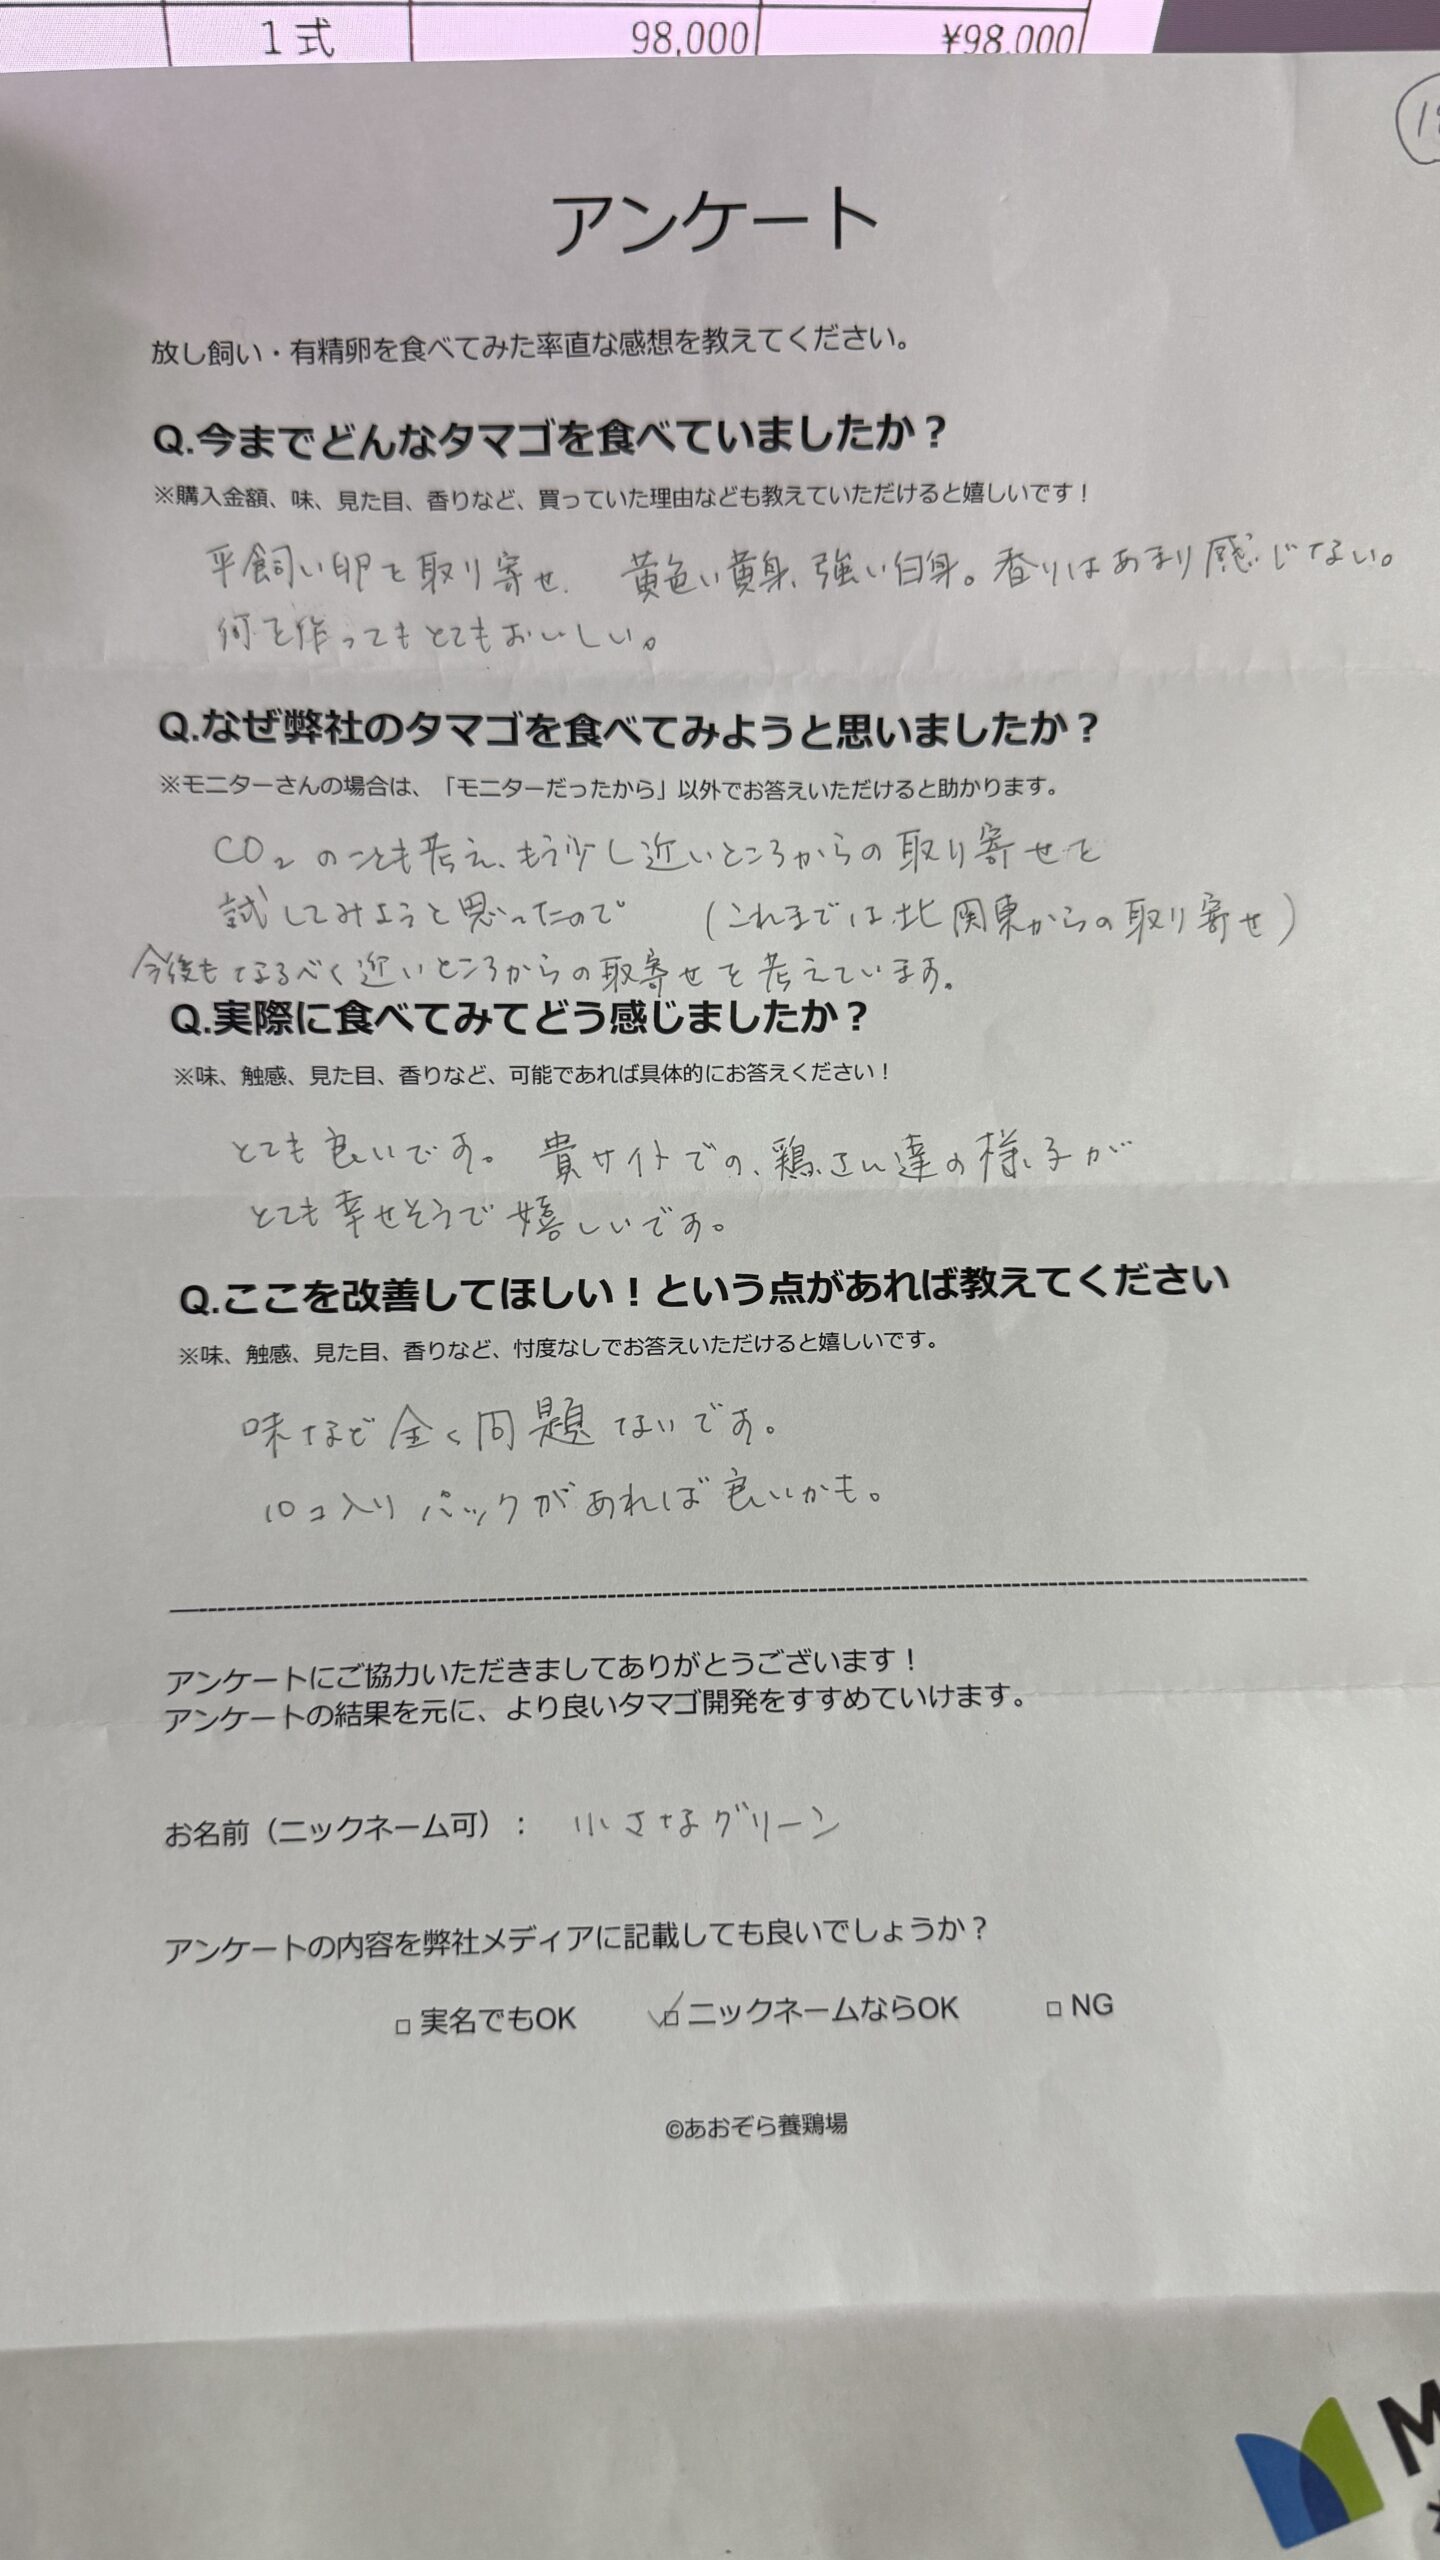 1 式 98,000 ¥98,000
アンケート
放し飼い・有精卵を食べてみた率直な感想を教えてください。
Q.今までどんなタマゴを食べていましたか？
※購入金額、味、見た目、香りなど、買っていた理由なども教えていただけると嬉しいです！
平飼い卵を取り寄せ、黄色い黄身、強い白身。香りはあまり感じない。
何を作ってもとてもおいしい。
Q.なぜ弊社のタマゴを食べてみようと思いましたか？
※モニターさんの場合は、「モニターだったから」以外でお答えいただけると助かります。
CO₂のことも考え、もう少し近いところからの取り寄せを
試してみようと思ったので （これまでは北関東からの取り寄せ）
今後もなるべく近いところからの取寄せを考えています。
Q.実際に食べてみてどう感じましたか？
※味、触感、見た目、香りなど、可能であれば具体的にお答えください！
とても良いです。貴サイトでの、鶏さん達の様子が
とても幸せそうで嬉しいです。
Q.ここを改善してほしい！という点があれば教えてください
※味、触感、見た目、香りなど、忖度なしでお答えいただけると嬉しいです。
味など全く問題ないです。
10コ入りパックがあれば良いかも。
アンケートにご協力いただきましてありがとうございます！
アンケートの結果を元に、より良いタマゴ開発をすすめていけます。
お名前（ニックネーム可）： 小さなグリーン
アンケートの内容を弊社メディアに記載しても良いでしょうか？
□ 実名でもOK ☑ ニックネームならOK □ NG
©あおぞら養鶏場